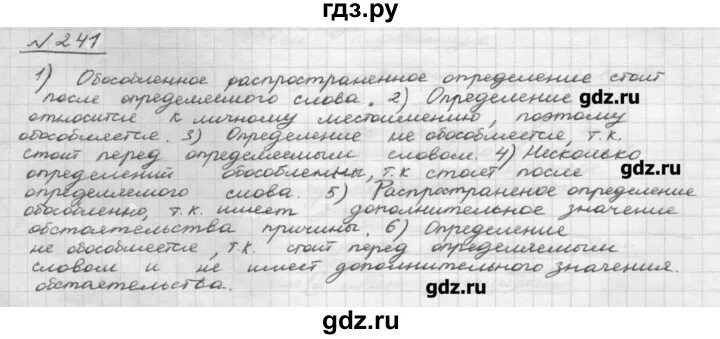 гдз.ру
№ 241
1) Обособленное распространенное определение стоит
после определяемого слова. 2) Определение
gdz.ru
относится к личному местоимению, поэтому
обособляется. 3) Определение не обособляется, т.к.
стоит перед определяемым словом. 4) Несколько
определений обособлены, т.к стоят после
определяемого слова. 5) Распространеное определение
обособленно, т.к. имеет дополнительное значение
обстоятельства причины. 6) Определение
не обособляется, т.к. стоит перед определяемым
словом и не имеет дополнительного значения.
обстоятельства.
gdz.ru
gdz.ru